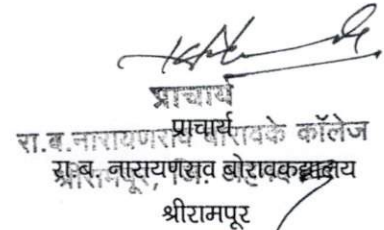 प्राचार्य
प्राचार्य
रा.ब.नारायणराव बोरावके कॉलेज
रा.ब. नारायणराव बोरावके
श्रीरामपूर, जि.
श्रीरामपूर